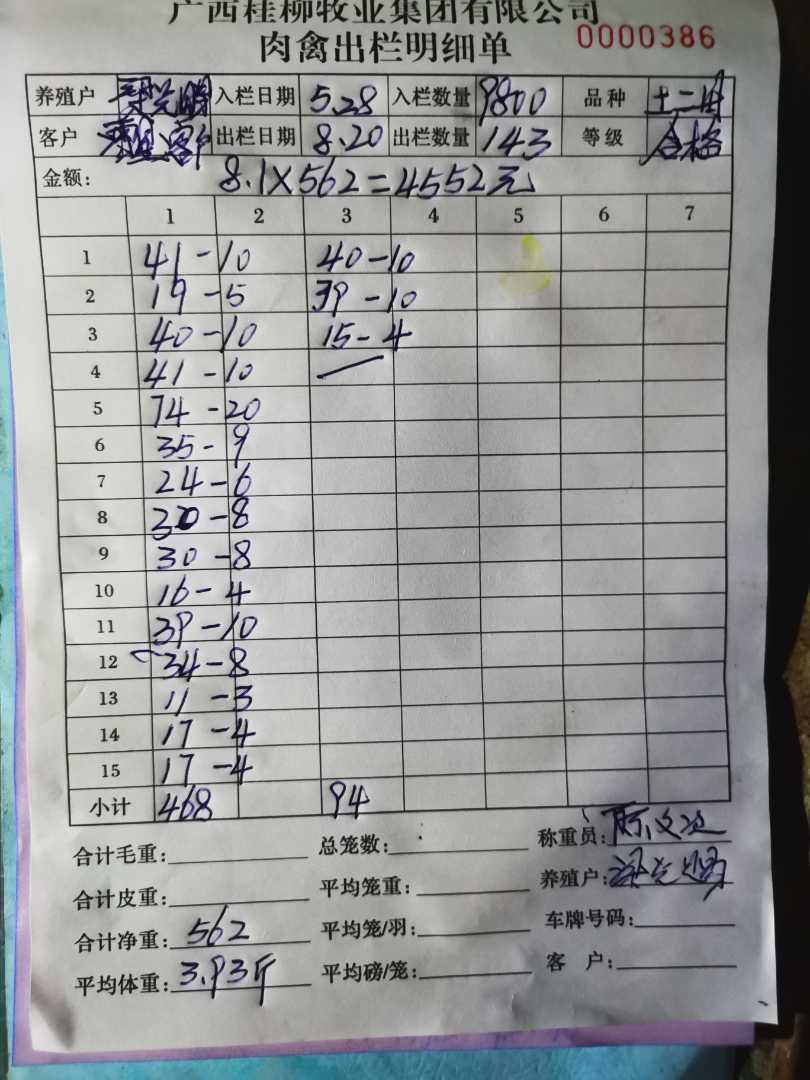 广西桂柳牧业集团有限公司
肉禽出栏明细单 0000386
养殖户 入栏日期 5.28 入栏数量 9800 品种 土二
客户 出栏日期 8.20 出栏数量 143 等级 合格
金额: 8.1×562=4552元
1 2 3 4 5 6 7
1 41-10 40-10
2 19-5 39-10
3 40-10 15-4
4 41-10
5 74-20
6 35-9
7 24-6
8 30-8
9 30-8
10 16-4
11 39-10
12 34-8
13 11-3
14 17-4
15 17-4
小计 468 94
合计毛重: 总笼数: 称重员:
合计皮重: 平均笼重: 养殖户:
合计净重: 562 平均笼/羽: 车牌号码:
平均体重: 3.93斤 平均磅/笼: 客户: